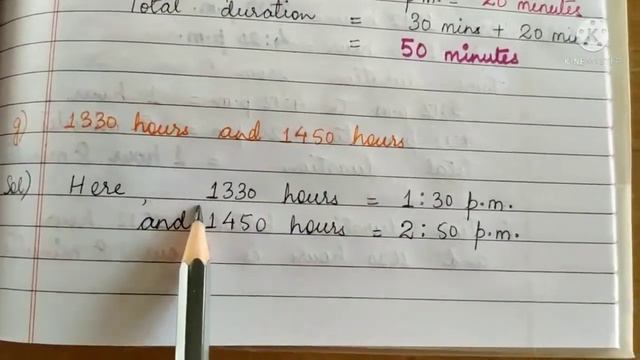 Total duration = p.m. = 20 minutes
30 mins + 20 min
= 50 minutes
g) 1330 hours and 1450 hours
Sol) Here, 1330 hours = 1:30 p.m.
and 1450 hours = 2:50 p.m.